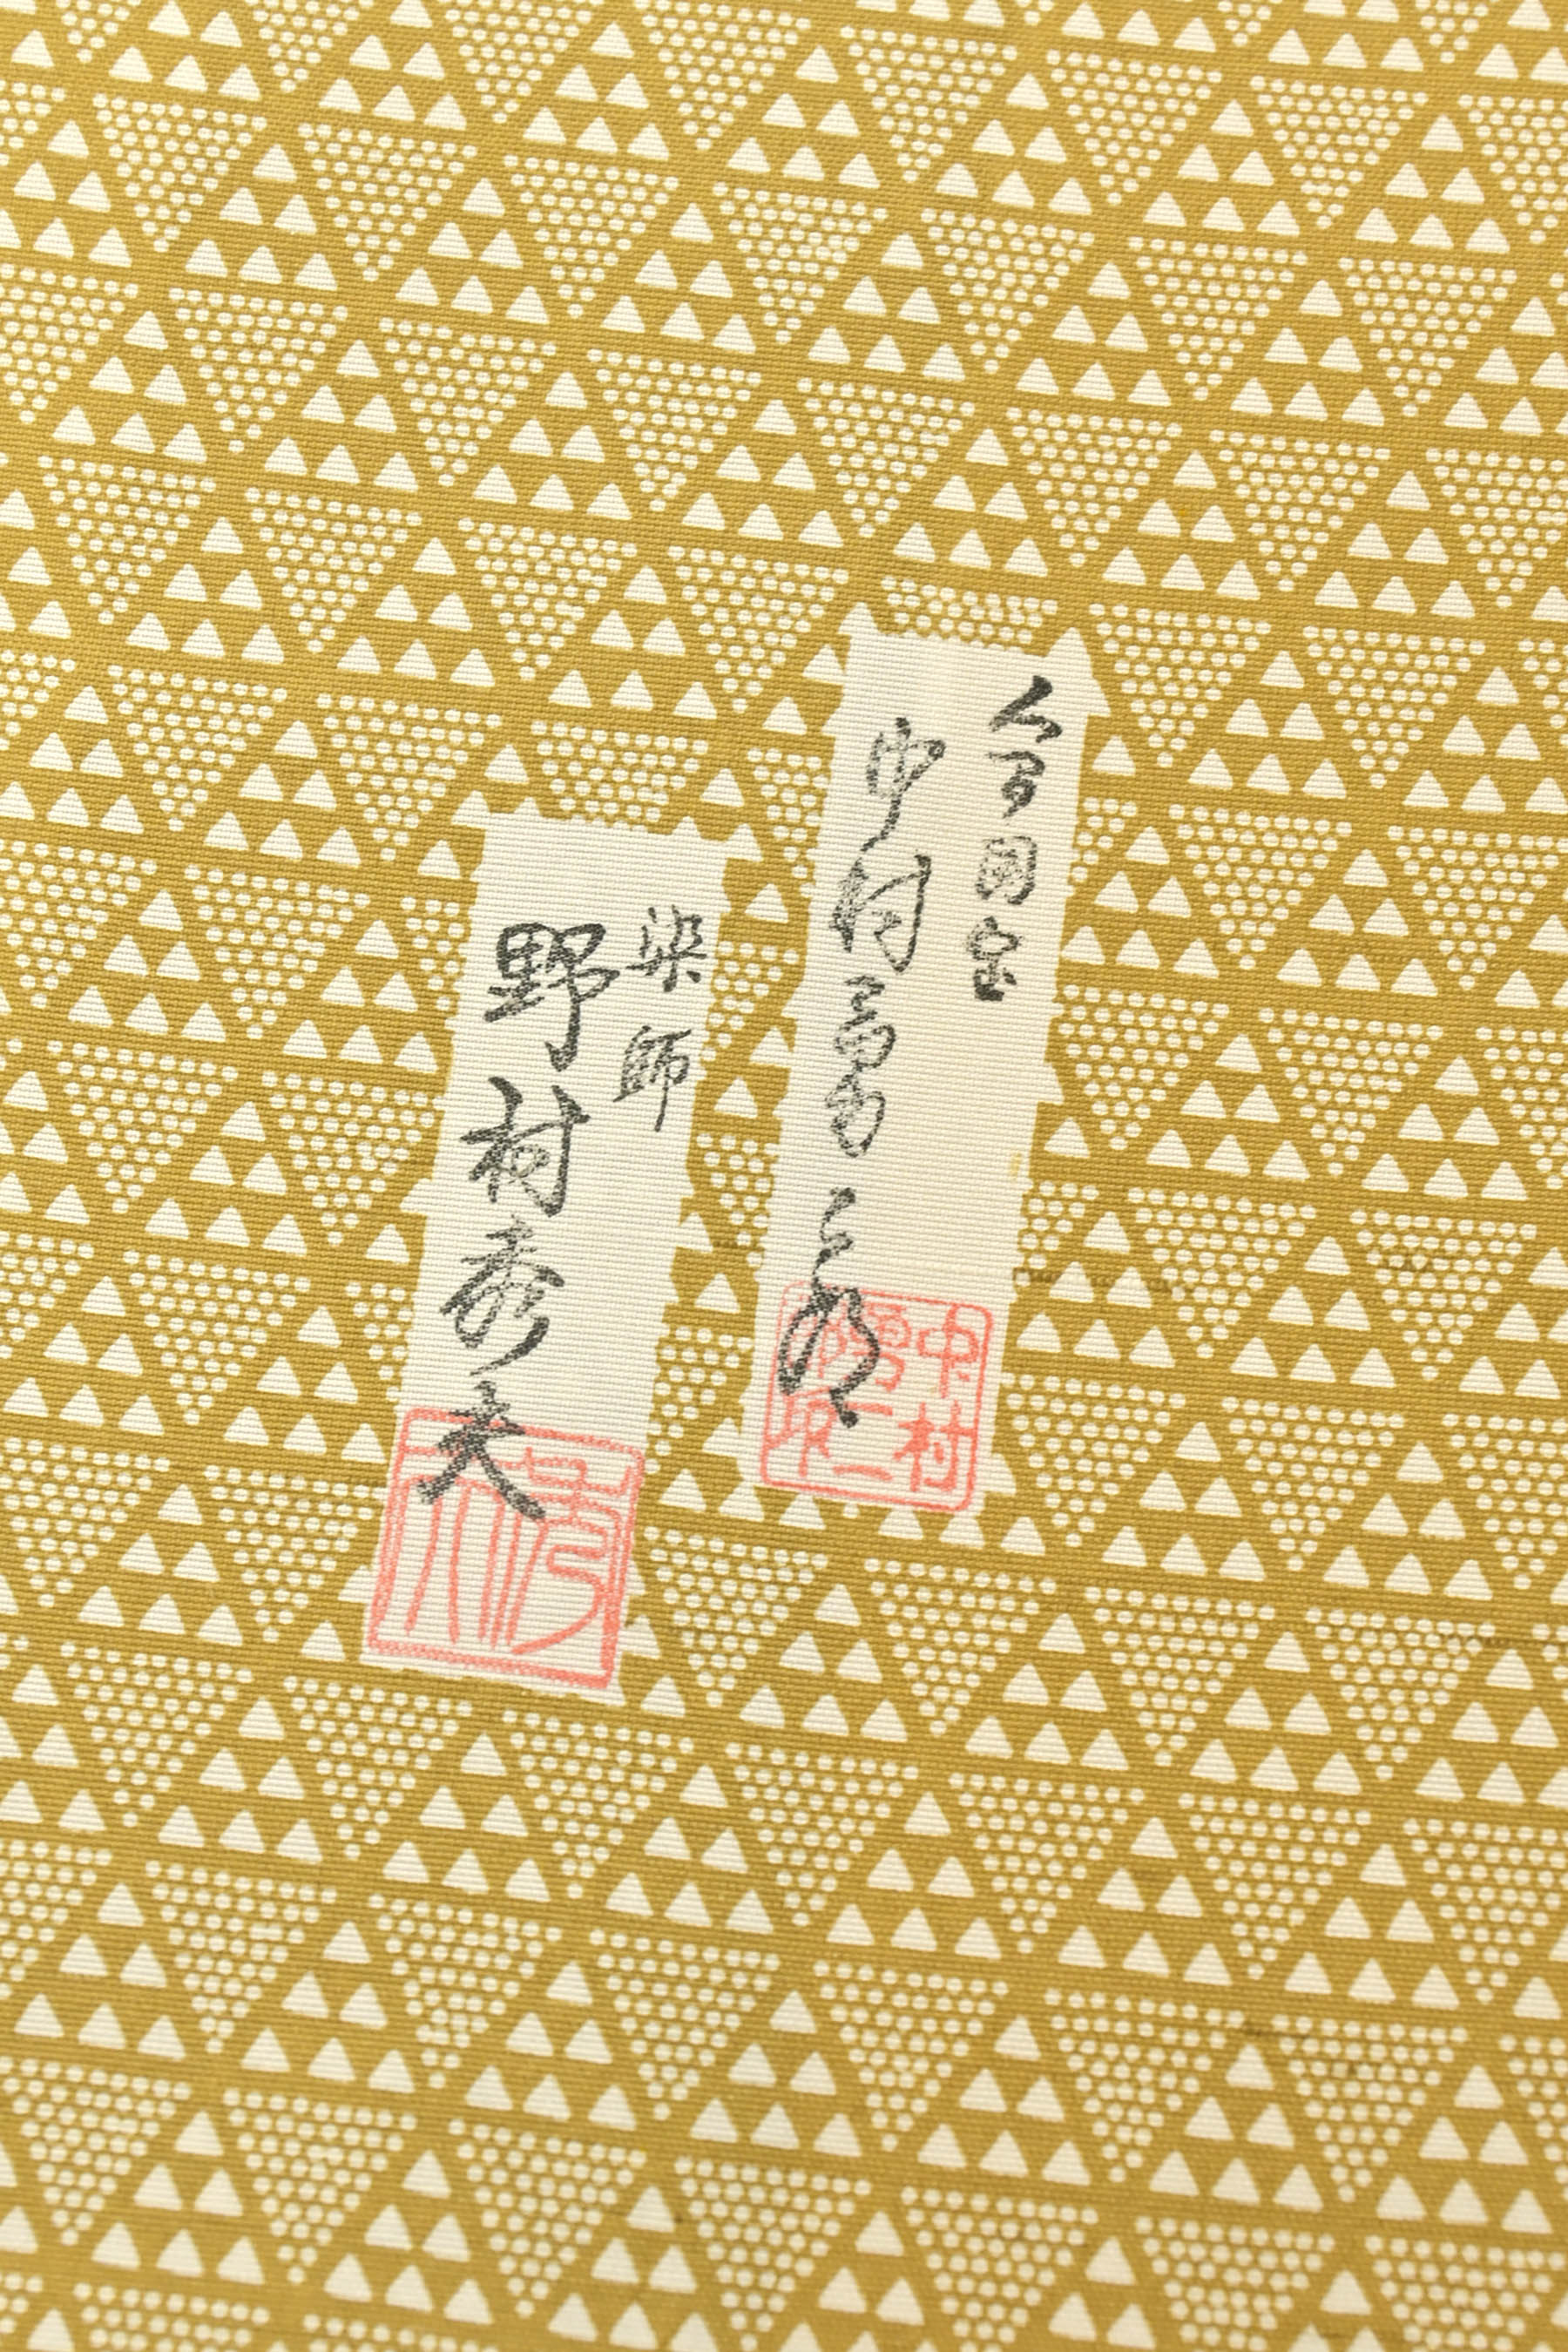 人間国宝
中村勇二郎
中村
勇二
郎印
染師
野村秀夫